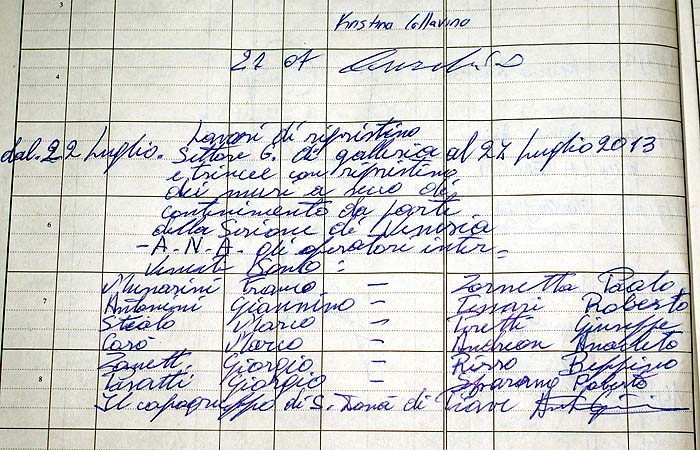 3
Kristina Collavino
4
21 07
Lavori di ripristino
dal. 22 Luglio. Settore G. di galleria al 27 Luglio 2013
e trincee con ripristino
dei muri a secco di
contenimento da parti
della Sezione di Venezia
- A. N. A. gli operatori inter=
venuti sono:
6
Munarini Franco - Zornetta Paolo
7
Antonini Giannino - Tessari Roberto
Stealo Marco - Giuseppe
Carò Marco - Andreon
Zanetti Giorgio - Risso Beppino
8
Giorgio - Roberto
Il capogruppo di S. Donà di Piave